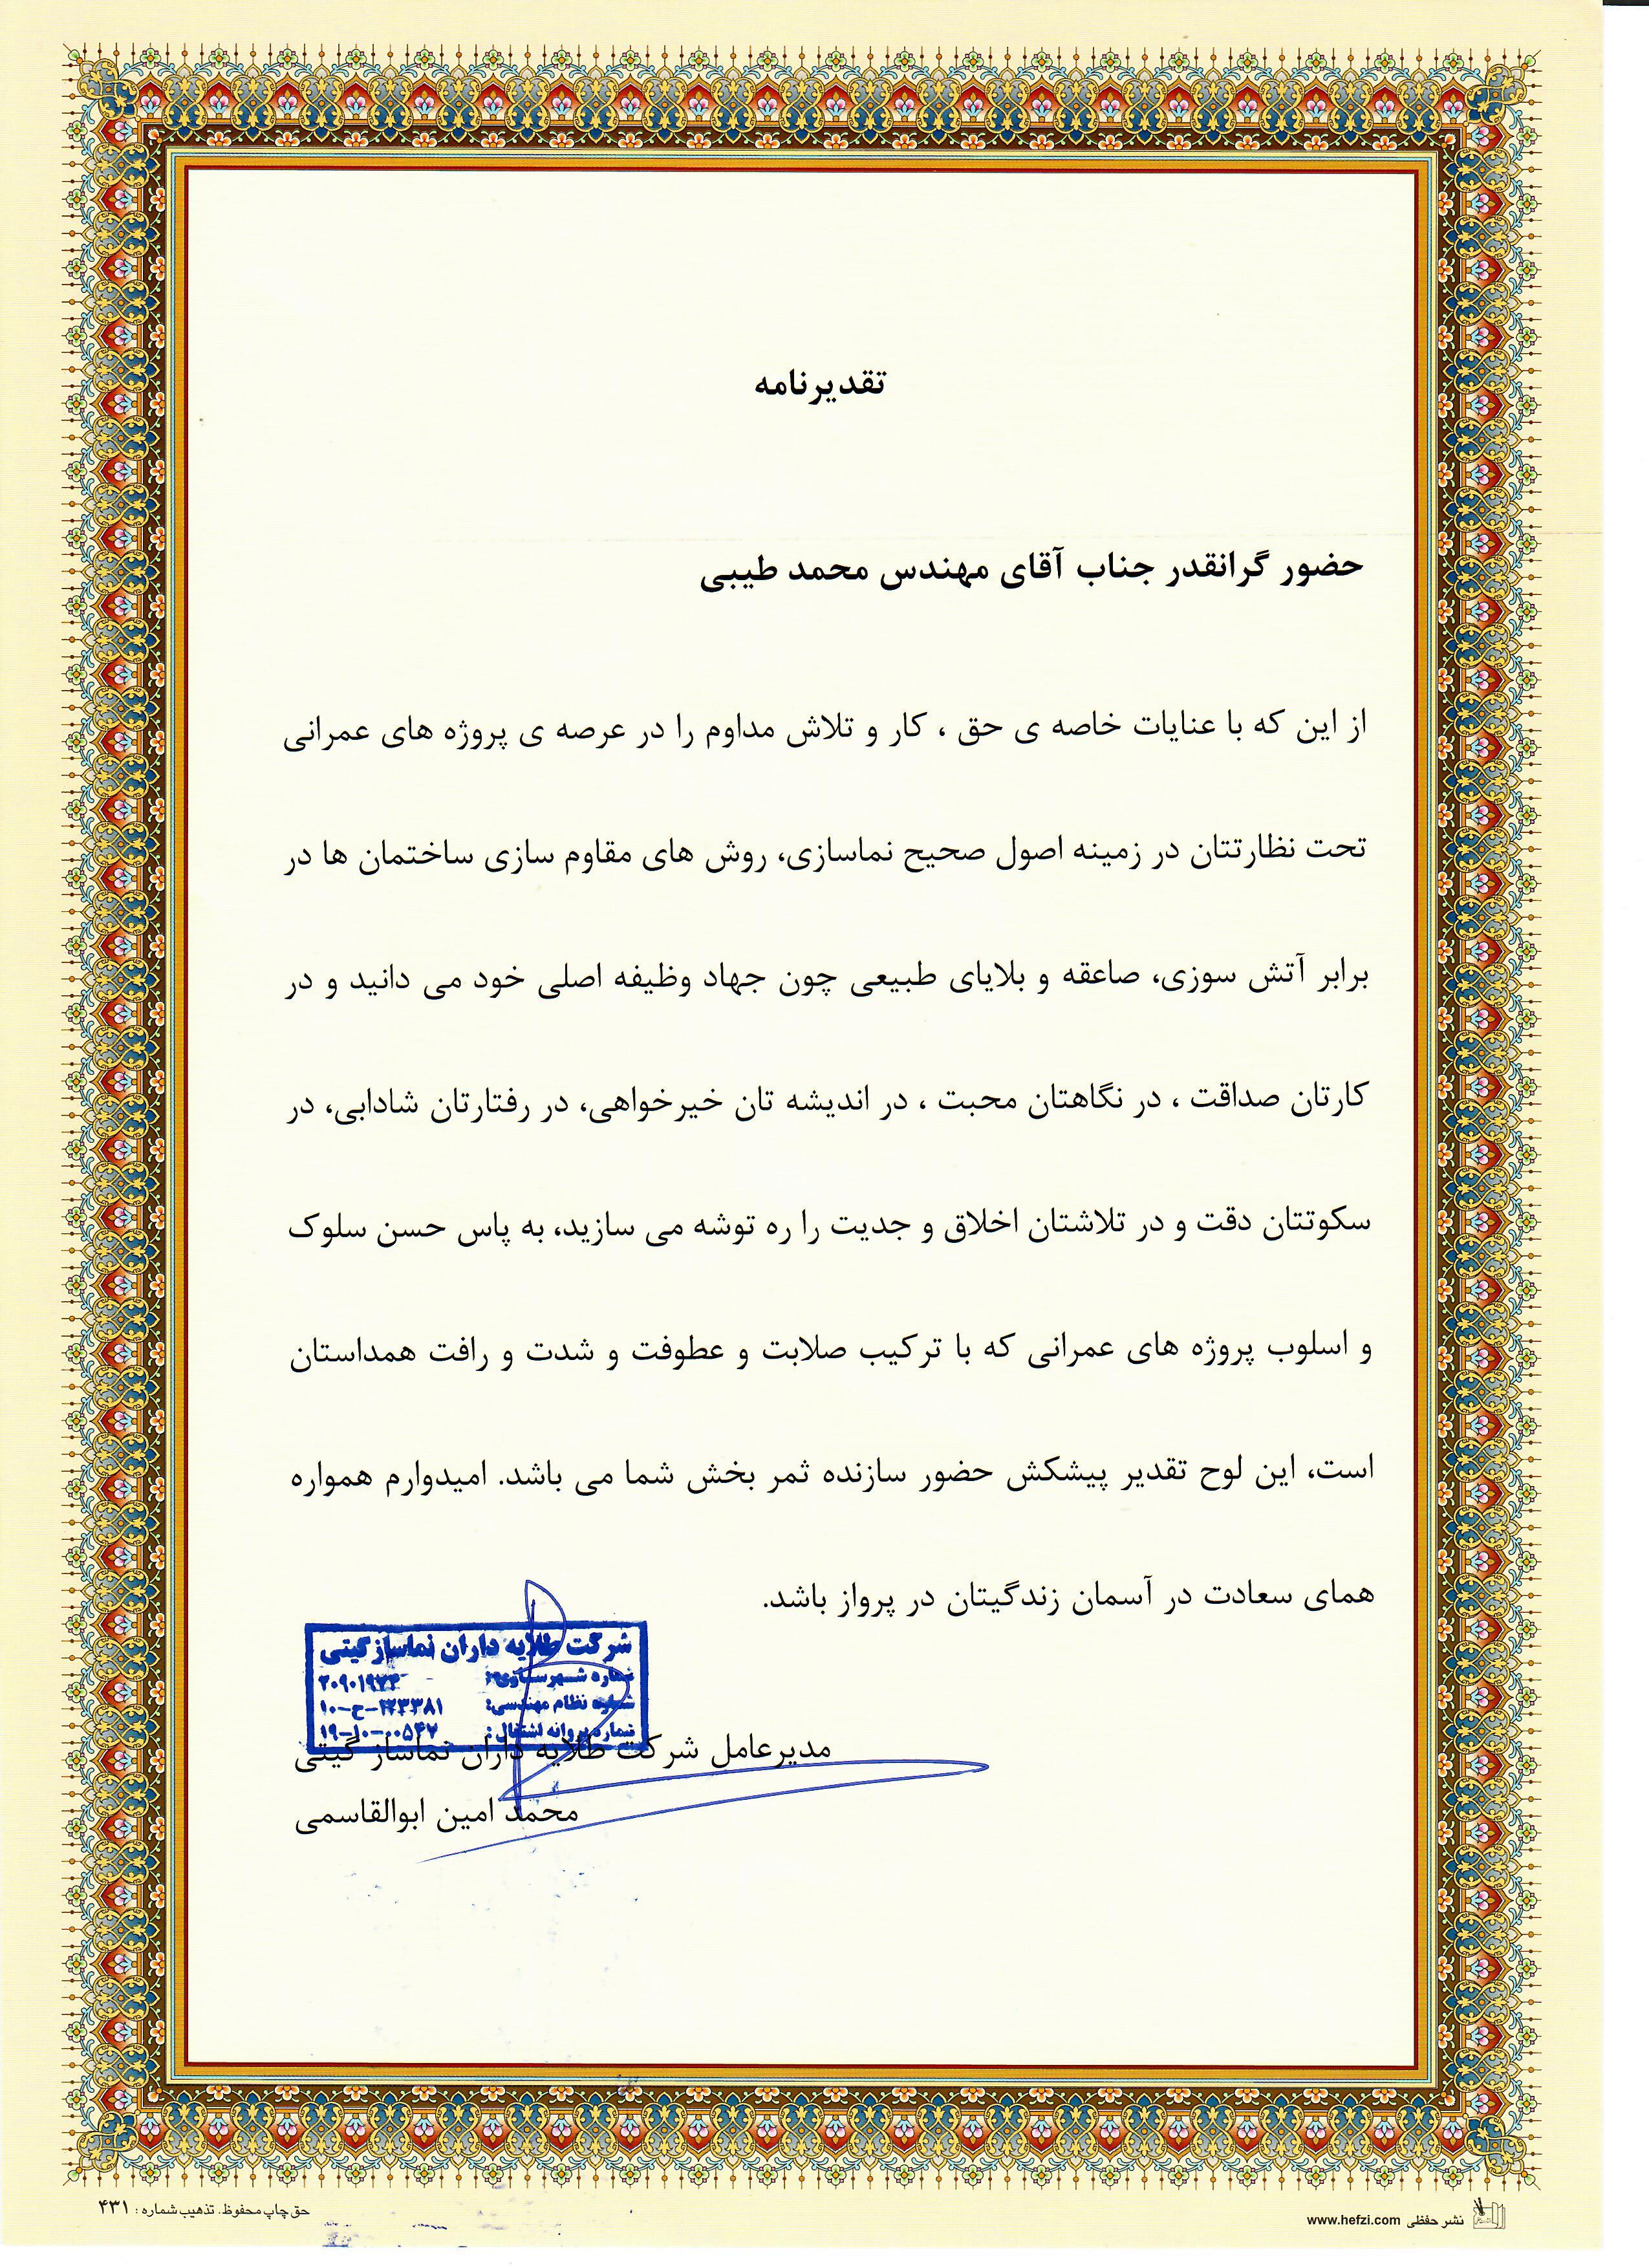 تقدیرنامه
حضور گرانقدر جناب آقای مهندس محمد طیبی
از این که با عنایات خاصه ی حق ، کار و تلاش مداوم را در عرصه ی پروژه های عمرانی
تحت نظارتتان در زمینه اصول صحیح نماسازی، روش های مقاوم سازی ساختمان ها در
برابر آتش سوزی، صاعقه و بلایای طبیعی چون جهاد وظیفه اصلی خود می دانید و در
کارتان صداقت ، در نگاهتان محبت ، در اندیشه تان خیرخواهی، در رفتارتان شادابی، در
سکوتتان دقت و در تلاشتان اخلاق و جدیت را ره توشه می سازید، به پاس حسن سلوک
و اسلوب پروژه های عمرانی که با ترکیب صلابت و عطوفت و شدت و رافت همداستان
است، این لوح تقدیر پیشکش حضور سازنده ثمر بخش شما می باشد. امیدوارم همواره
همای سعادت در آسمان زندگیتان در پرواز باشد.
شرکت طلایه داران نماساز گیتی
شماره شهرسازی:
شماره نظام مهندسی: ۱۰-ح-
شماره پروانه اشتغال: ۱۹-۱۰-۰۰۵۴۷
مدیرعامل شرکت طلایه داران نماساز گیتی
محمد امین ابوالقاسمی
نشر حفظی www.hefzi.com
حق چاپ محفوظ. تذهیب شماره : ۴۳۱